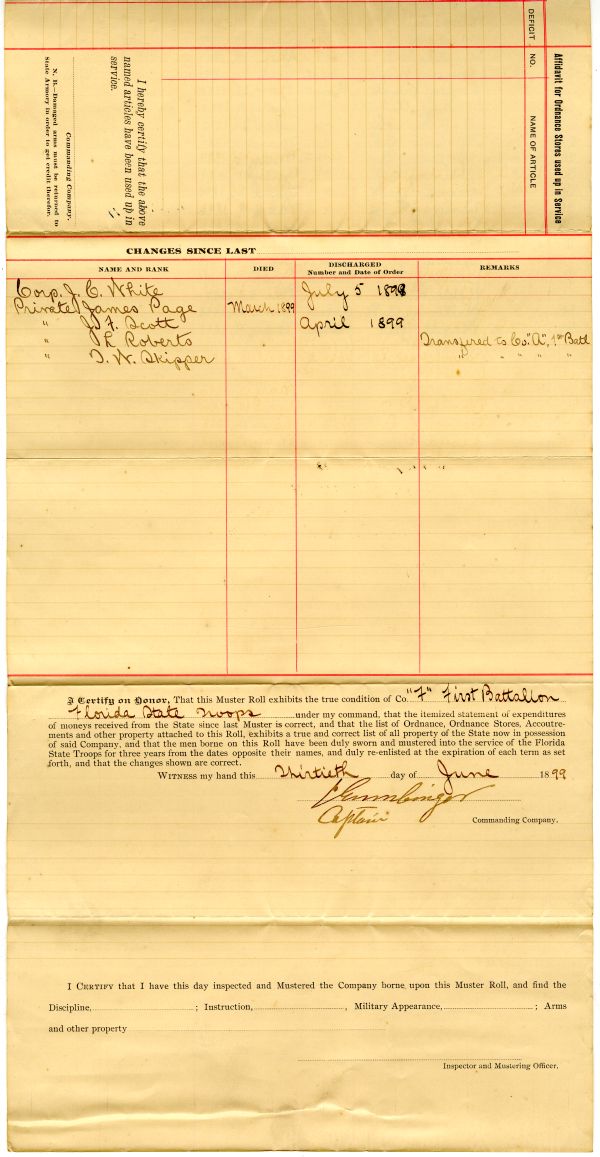 Affidavit for Ordnance Stores used up in Service
DEFICIT. NO. NAME OF ARTICLE
I hereby certify that the above
named articles have been used up in
service.
Commanding Company.
N. B.—Damaged arms must be returned to
State Armory in order to get credit therefor.
CHANGES SINCE LAST
NAME AND RANK DIED DISCHARGED Number and Date of Order REMARKS
Corp. J. C. White July 5 1898
Private James Page March 1899
" J. F. Scott April 1899
" L Roberts Transfered to Co. "A", 1st Batl
" D. W. Skipper " " " " "
I Certify on Honor, That this Muster Roll exhibits the true condition of Co. "F" First Battallon
Florida State Troops under my command, that the itemized statement of expenditures
of moneys received from the State since last Muster is correct, and that the list of Ordnance, Ordnance Stores, Accoutre-
ments and other property attached to this Roll, exhibits a true and correct list of all property of the State now in possession
of said Company, and that the men borne on this Roll have been duly sworn and mustered into the service of the Florida
State Troops for three years from the dates opposite their names, and duly re-enlisted at the expiration of each term as set
forth, and that the changes shown are correct.
WITNESS my hand this Thirtieth day of June 1899
Captain Commanding Company.
I CERTIFY that I have this day inspected and Mustered the Company borne upon this Muster Roll, and find the
Discipline, ; Instruction, , Military Appearance, ; Arms
and other property
Inspector and Mustering Officer.